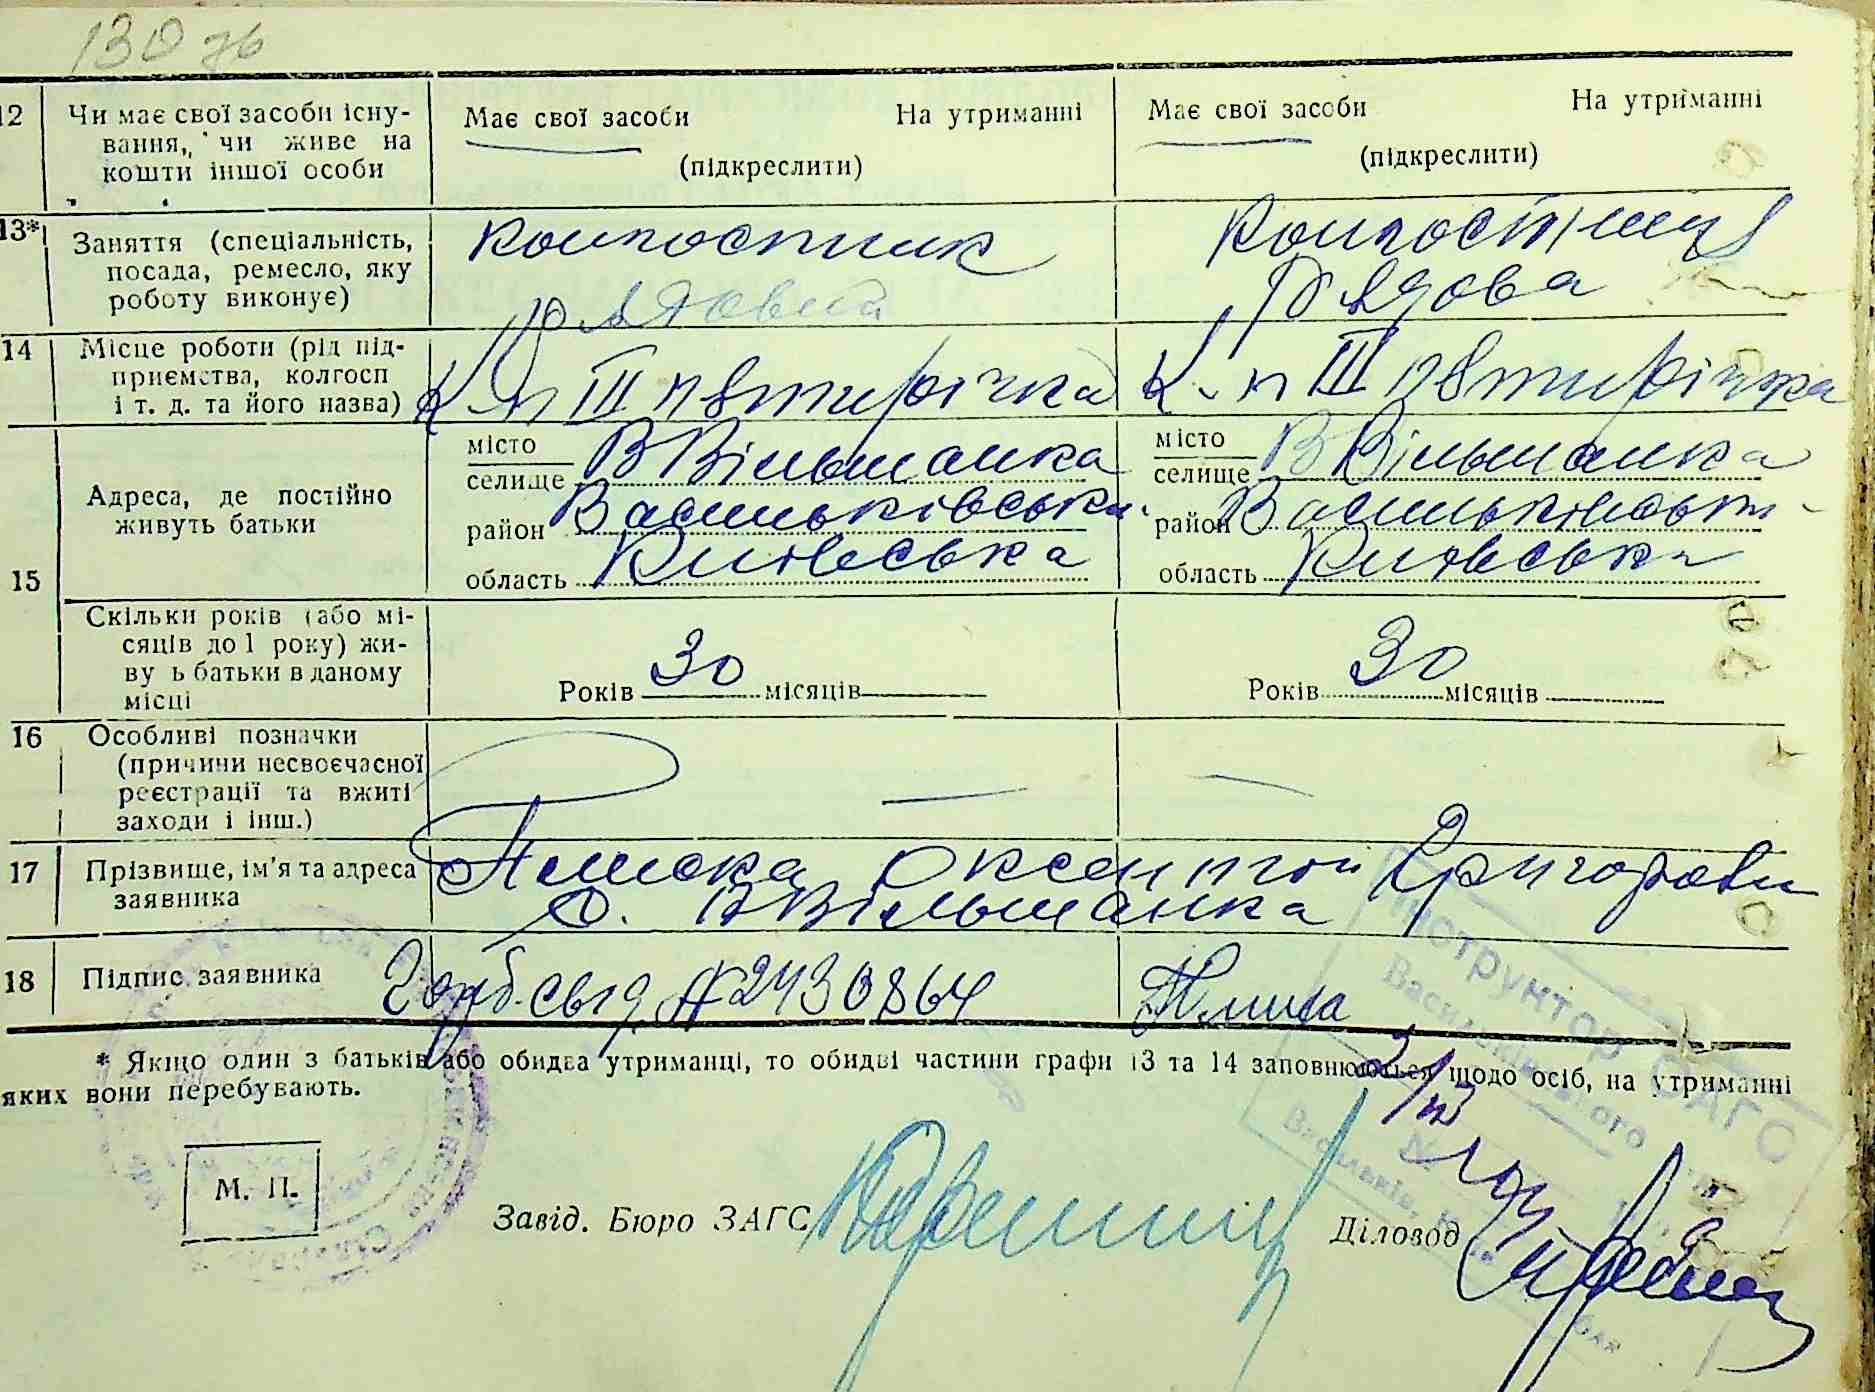 130 зв
12 Чи має свої засоби існу-
вання, чи живе на
кошти іншої особи
Має свої засоби На утриманні
(підкреслити)
Має свої засоби На утриманні
(підкреслити)
13* Заняття (спеціальність,
посада, ремесло, яку
роботу виконує)
колгоспник
рядовий
колгоспниця
рядова
14 Місце роботи (рід під-
приємства, колгосп
і т. д. та його назва)
К-п III пятирічка
К-п III пятирічка
15 Адреса, де постійно
живуть батьки
місто
селище В Вільшанка
район Васильківськ
область Київська
місто
селище В Вільшанка
район Васильківськ
область Київська
Скільки років (або мі-
сяців до 1 року) жи-
ву ь батьки в даному
місці
Років 30 місяців
Років 30 місяців
16 Особливі позначки
(причини несвоєчасної
реєстрації та вжиті
заходи і інш.)
17 Прізвище, ім'я та адреса
заявника
Оксентій Григорови
с. В Вільшанка
18 Підпис заявника
№ 2430864
* Якщо один з батьків або обидва утриманці, то обидві частини графи 13 та 14 заповнюються щодо осіб, на утриманні
яких вони перебувають.
Інструктор ЗАГС
М. П.
Завід. Бюро ЗАГС
Діловод